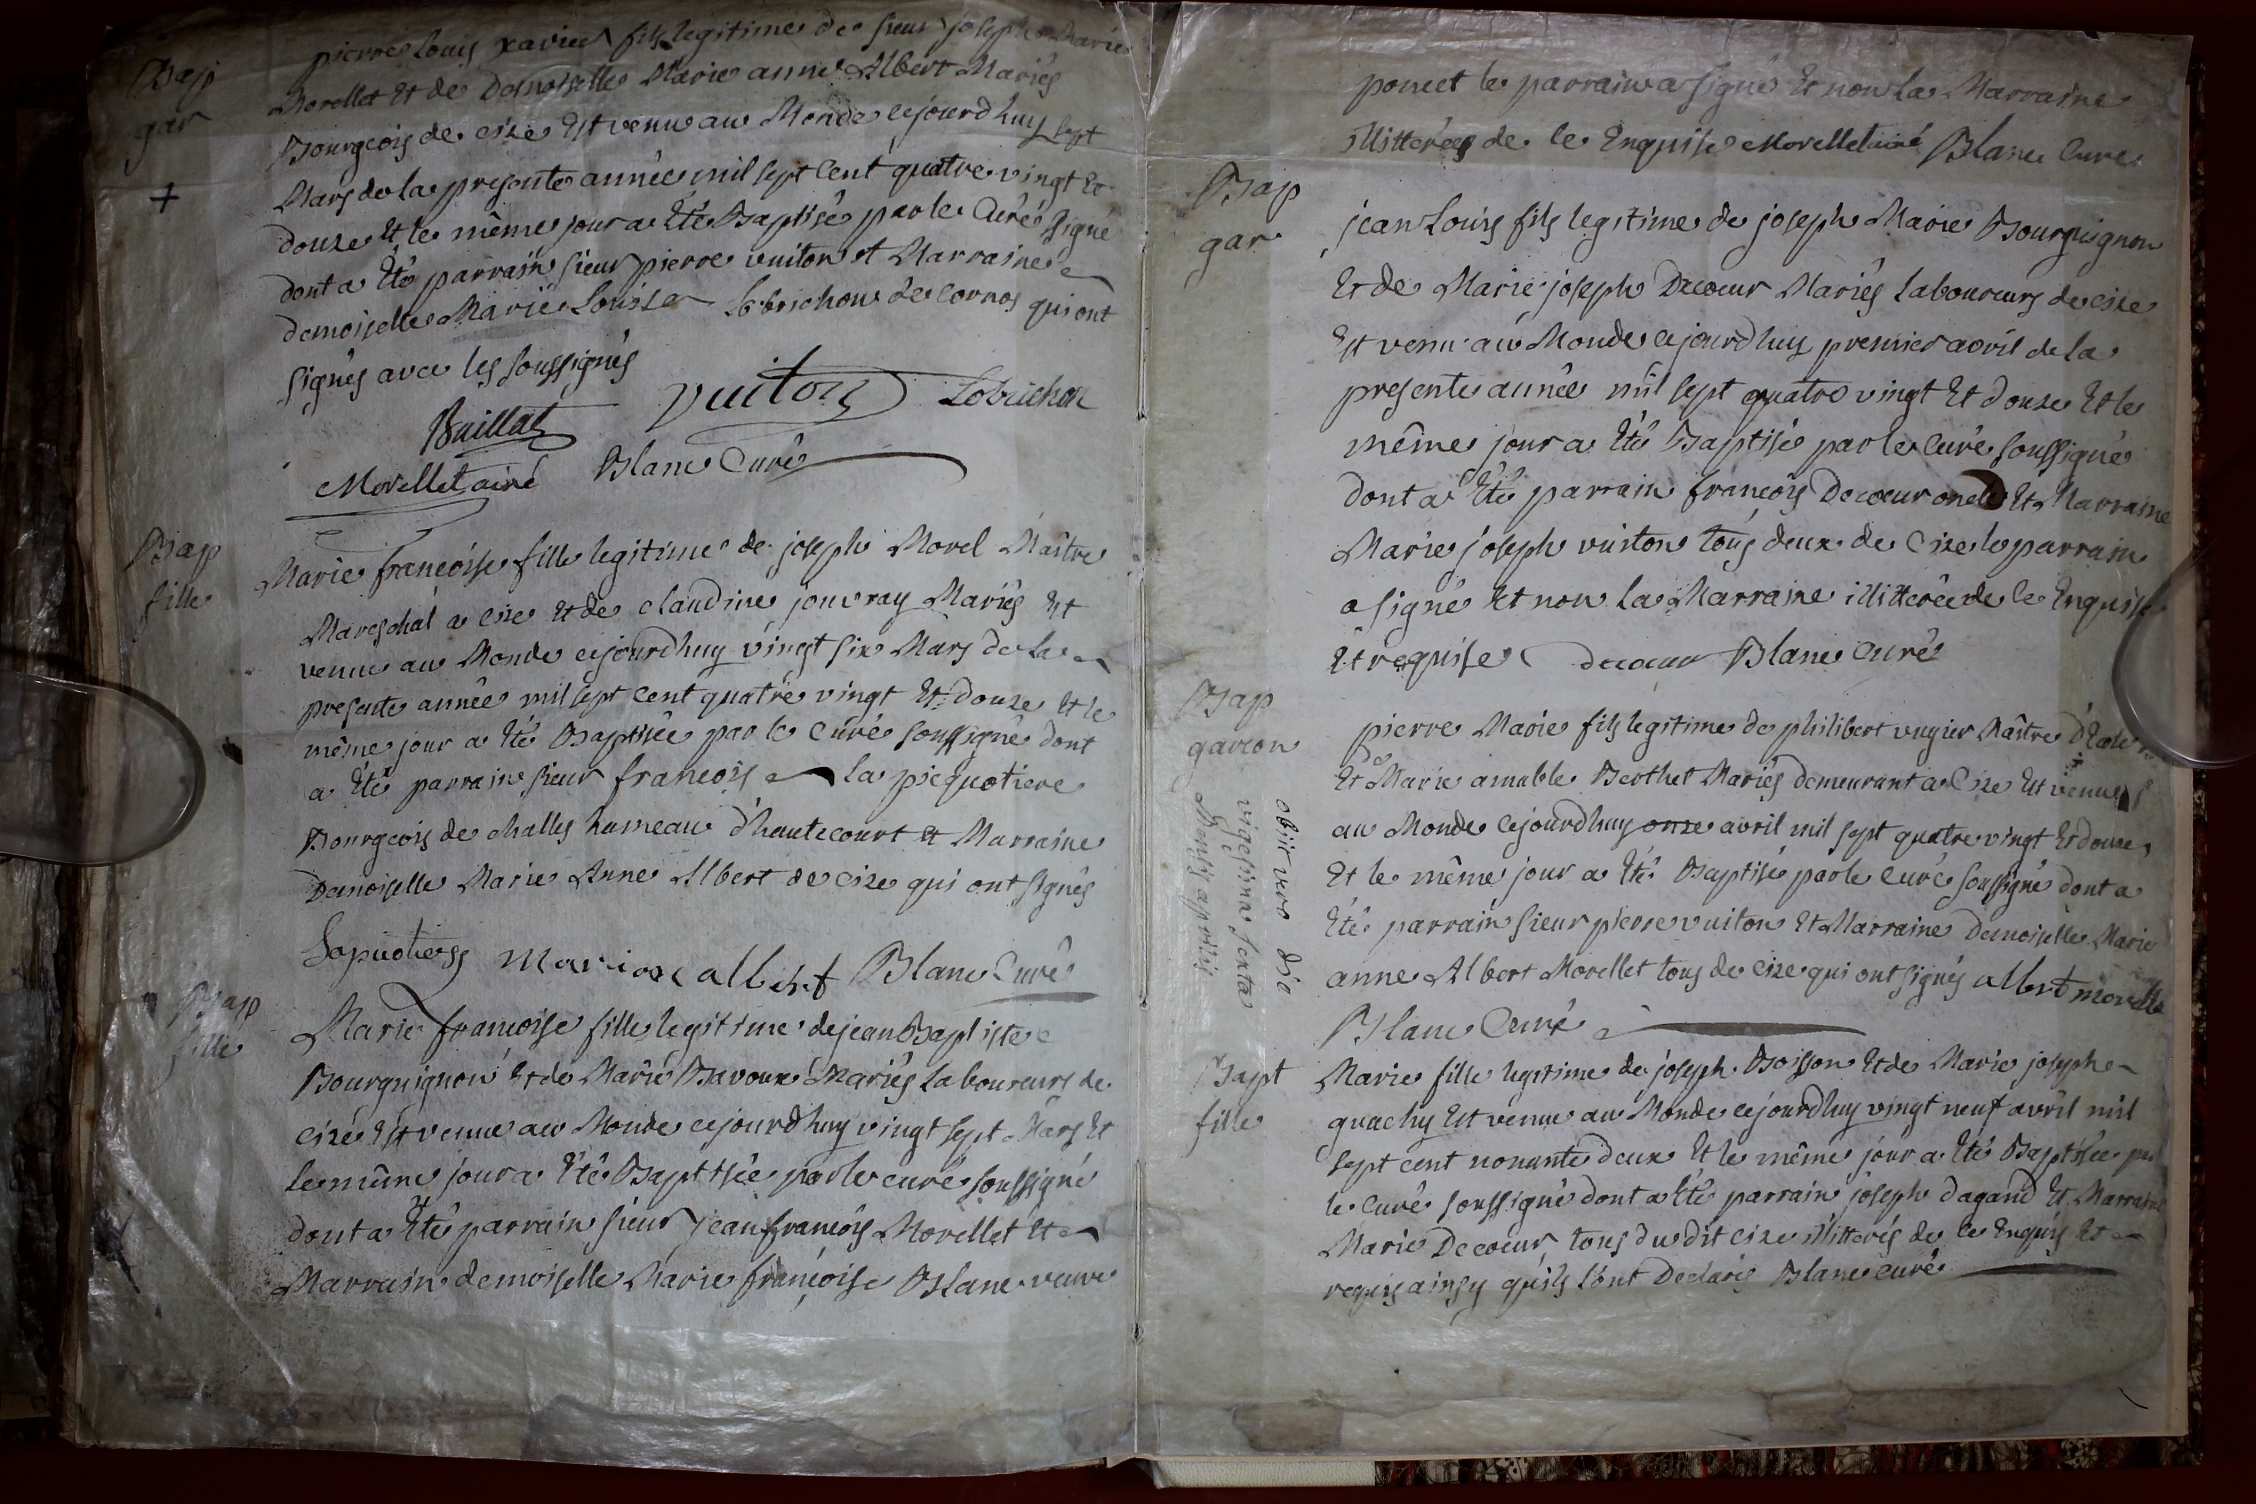 Bap
gar
+
pierre Louis xavier fils legitime de sieur joseph Marie
Morellet Et de Demoiselle Marie anne Albert Mariés
Bourgeois de cize Est venu au Monde cejourdhuy sept
Mars de la presente année mil sept Cent quatre vingt Et
douze Et le même jour a Eté Baptisé par le Curé signé
dont a Eté parrain sieur pierre vuiton et Marraine
demoiselle Marie Louise Lobrichon de cornos qui ont
signés avec les soussignés
vuiton Lobrichon
Buillat
Morellet ainé Blanc Curé
Bap
fille
Marie francoise fille legitime de joseph Morel Maitre
Mareschal a cize Et de claudine jouvray Mariés Est
venue au Monde cejourdhuy vingt six Mars de la
presente année mil sept cent quatre vingt Et douze Et le
même jour a Eté Baptisée par le Curé soussigné dont
a Eté parrain sieur francois la picquotiere
Bourgeois de challes hameau d'hautecourt Et Marraine
Demoiselle Marie Anne Albert de cize qui ont signés
Marianne albert Blanc Curé
Bap
fille
Marie francoise fille legitime de jean Baptiste
Bourguignon Et de Marie Bavoux Mariés Laboureurs de
cizé Est venue au Monde cejourdhuy vingt sept Mars Et
le même jour a Eté Baptisée par le curé soussigné
dont a Eté parrain sieur jean francois Morellet Et
Marrain demoiselle Marie françoise Blanc veuve
poncet le parrain a signé Et non la Marraine
illitterée de ce Enquise Morellet ainé Blanc Curé
Bap
gar
jean Louis fils legitime de joseph Marie Bourguignon
Et de Marie joseph Decoeur Mariés Laboureurs de cize
Est venu au Monde cejourdhuy premier avril de la
presente année mil sept quatre vingt Et douze Et le
même jour a Eté Baptisé par le Curé soussigné
dont a Eté parrain francois Decoeur oncle Et Marraine
Marie joseph vuiton tous deux de Cize le parrain
a signé Et non la Marraine illitterée de ce Enquise
Et requise decoeur Blanc Curé
Bap
garcon
obiit vero die
vigesima sexta
Mensis aprilis
pierre Marie fils legitime de philibert vugier Maître d'Ecole
Et de Marie amable Berthet Mariés demeurant a Cize Est venu
au Monde cejourdhuy onze avril mil sept quatre vingt Et douze
Et le même jour a Eté Baptisé par le Curé soussigné dont a
Eté parrain sieur pierre vuiton Et Marraine Demoiselle Marie
anne Albert Morellet tous de cize qui ont signés albert morelle
Blanc Curé
Bapt
fille
Marie fille legitime de joseph Boisson Et de Marie josephe
quachy Est venue au Monde cejourdhuy vingt neuf avril mil
sept cent nonante deux Et le même jour a Eté Baptisée par
le Curé soussigné dont a Eté parrain joseph dagand Et Marraine
Marie Decoeur tous du dit cize illitterés de ce Enquis Et
requis ainsy qu'ils l'ont Declaré Blanc curé